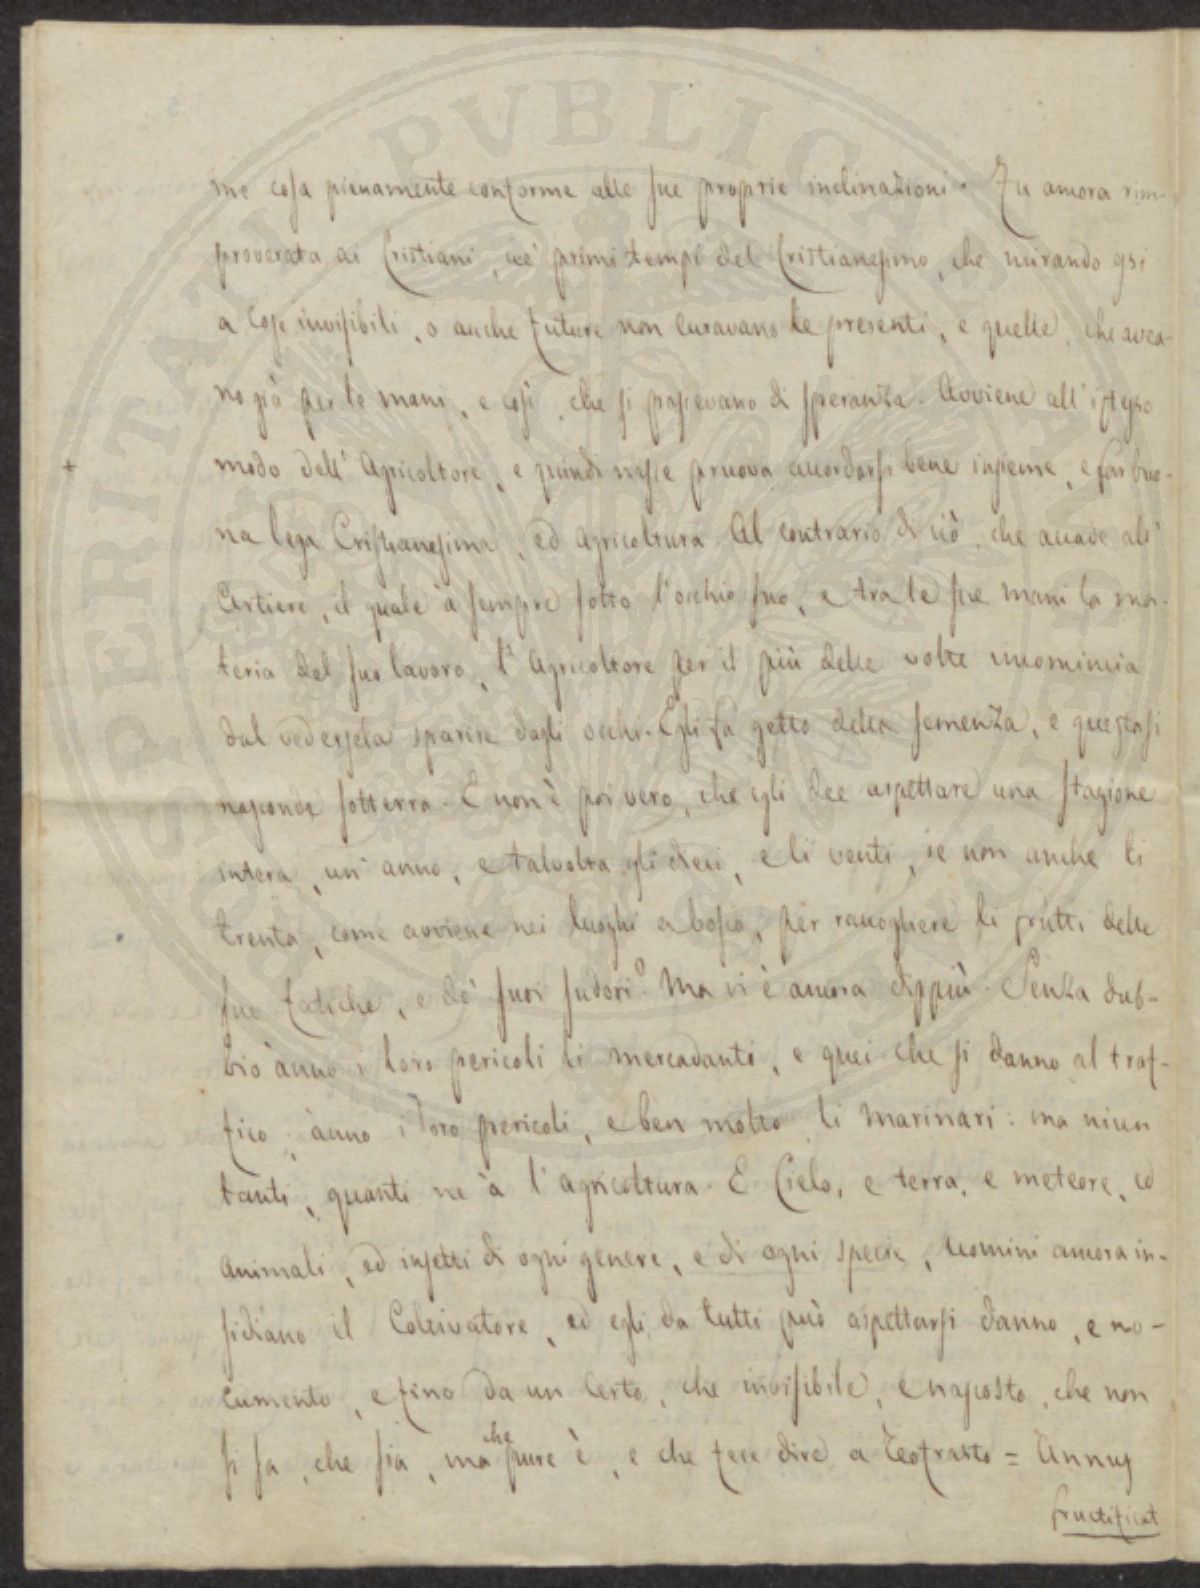 me cosa pienamente conforme alle sue proprie inclinazioni. Fu ancora rim-
proverata ai Cristiani, ne' primi tempi del Cristianesimo, che mirando essi
a cose invisibili, o anche future non curavano le presenti, e quelle, che avea-
no già per le mani, e così, che si pascevano di speranza. Avviene all'istesso
modo dell'Agricoltore, e quindi nasce pruova accordarsi bene insieme, e far buo-
na lega Cristianesimo, ed Agricoltura. Al contrario di ciò, che accade all'
Artiere, il quale à sempre sotto l'occhio suo, e tra le sue mani la ma-
teria del suo lavoro, l'Agricoltore per il più delle volte incomincia
dal vedersela sparire dagli occhi. Egli fa getto della semenza, e questa si
nasconde sotterra. E non è poi vero, che egli dee aspettare una stagione
intera, un'anno, e talvolta gli dieci, e li venti, se non anche li
trenta, come avviene nei luoghi a bosco, per raccogliere li frutti delle
sue fatiche, e de' suoi sudori? Ma vi è ancora dippiù. Senza dub-
bio ànno i loro pericoli li mercadanti, e quei che si danno al traf-
fico, ànno i loro pericoli, e ben molto li marinari: ma niun
tanti, quanti ne à l'agricoltura. E Cielo, e terra, e meteore, ed
animali, ed insetti di ogni genere, e di ogni specie, uomini ancora in-
sidiano il Coltivatore, ed egli da tutti può aspettarsi danno, e no-
cumento, e fino da un certo, che invisibile, e nascosto, che non
si sa, che sia, ma che pure è, e che fece dire a Teofrasto = Annus
fructificat
SPERITATI PVBLICAE